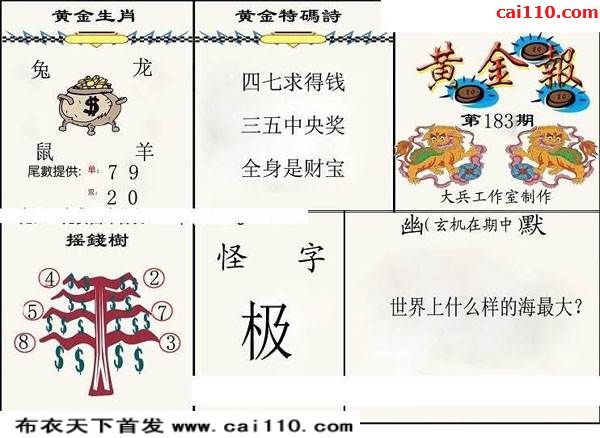 cai110.com
黄金生肖
兔 龙
$
鼠 羊
尾數提供: 单: 7 9
双: 2 0
黄金特碼詩
四七求得钱
三五中央奖
全身是财宝
黄金報
第183期
大兵工作室制作
摇錢樹
④ ②
⑤ ⑦
⑧ ③
怪 字
极
幽(玄机在期中)默
世界上什么样的海最大?
布衣天下首发 www.cai110.com